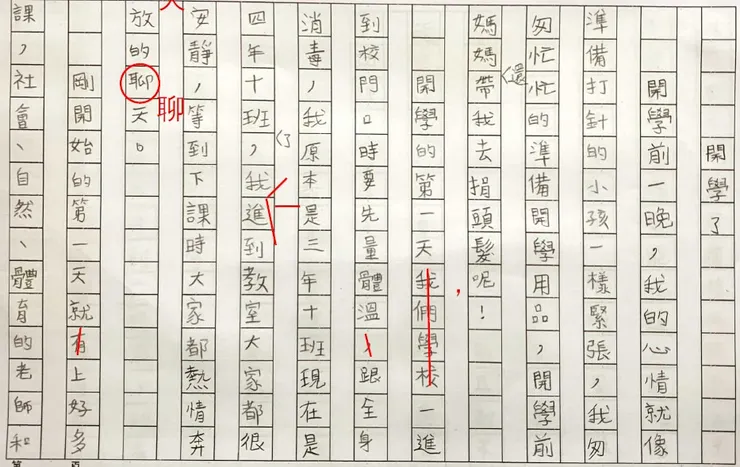 開學了
開學前一晚，我的心情就像
準備打針的小孩一樣緊張，我匆
匆忙忙的準備開學用品，開學前
媽媽還帶我去捐頭髮呢！
開學的第一天我們學校，一進
到校門口時要先量體溫、跟全身
消毒，我原本是三年十班現在是
四年十班，了我進到教室大家都很
安靜，等到下課時大家都熱情奔
放的聊天。
聊
剛開始的第一天就有上好多
課，社會、自然、體育的老師和